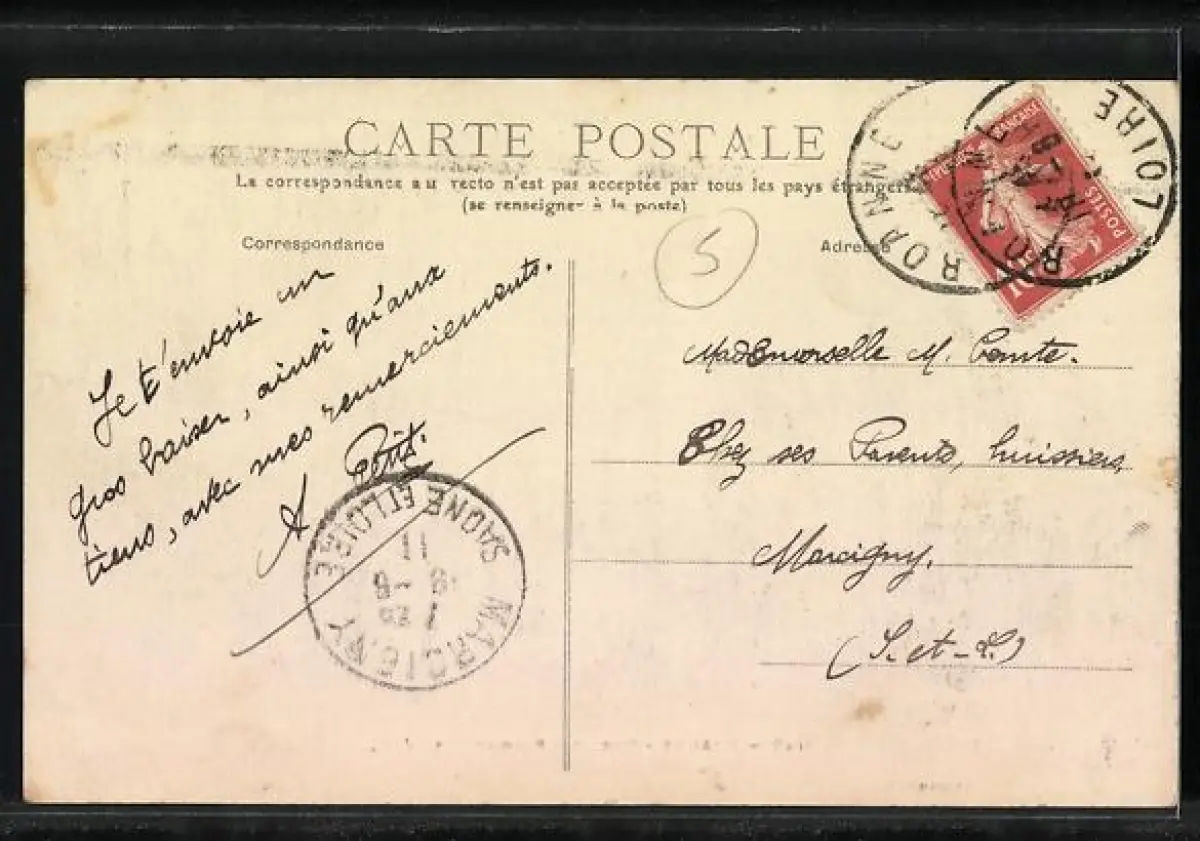 CARTE POSTALE
La correspondance au recto n'est pas acceptée par tous les pays étrangers
(se renseigner à la poste)
Correspondance
Adresse
5
ROANNE
LOIRE
POSTES
10
Je t'envoie un
gros baiser, ainsi qu'aux
tiens, avec mes remerciements.
A Petit.
Mademoiselle M. Comte.
Chez ses Parents, huissiers,
Marcigny.
(S.-et-L.)
MARCIGNY
SAONE ET LOIRE
11